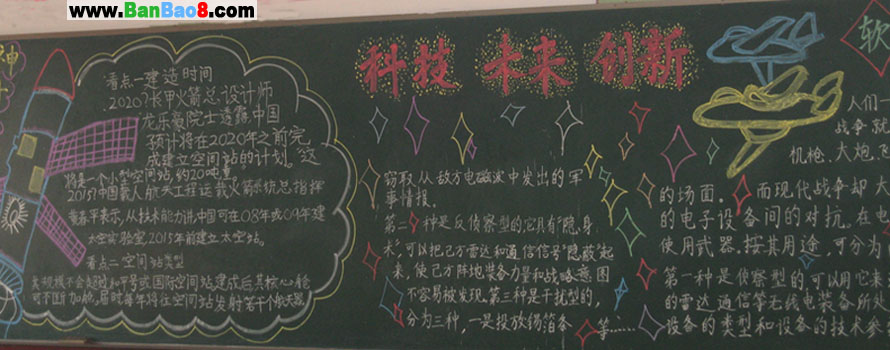 www.BanBao8.com
神
科技 未来 创新
软
看点一建造时间
2020?长甲火箭总设计师
龙乐豪院士透露中国
预计将在2020年之前完
成建立空间站的计划。这
将是一个小型空间站,约20吨重。
2015?中国载人航天工程运载火箭系统总指挥
黄春平表示,从技术能力讲,中国可在08年或09年建
太空实验室,2015年前建立太空站。
看点二空间站类型
其规模不会超过和平号或国际空间站建成后其核心舱
可不断加舱,届时每年将往空间站发射若干个航天器
窃取从敌方电磁波中发出的军
事情报。
第二种是反侦察型的,它具有"隐身
术",可以把己方雷达和通信信号"隐蔽"起
来,使己方阵地装备力量和战略意图
不容易被发现。第三种是干扰型的,
分为三种,一是投放锡箔条 等……
人们一
战争就
机枪、大炮、飞
的场面。而现代战争却大
的电子设备间的对抗。在电
使用武器。按其用途,可分为
第一种是侦察型的,可以用它来
的雷达通信等无线电装备所处
设备的类型和设备的技术参